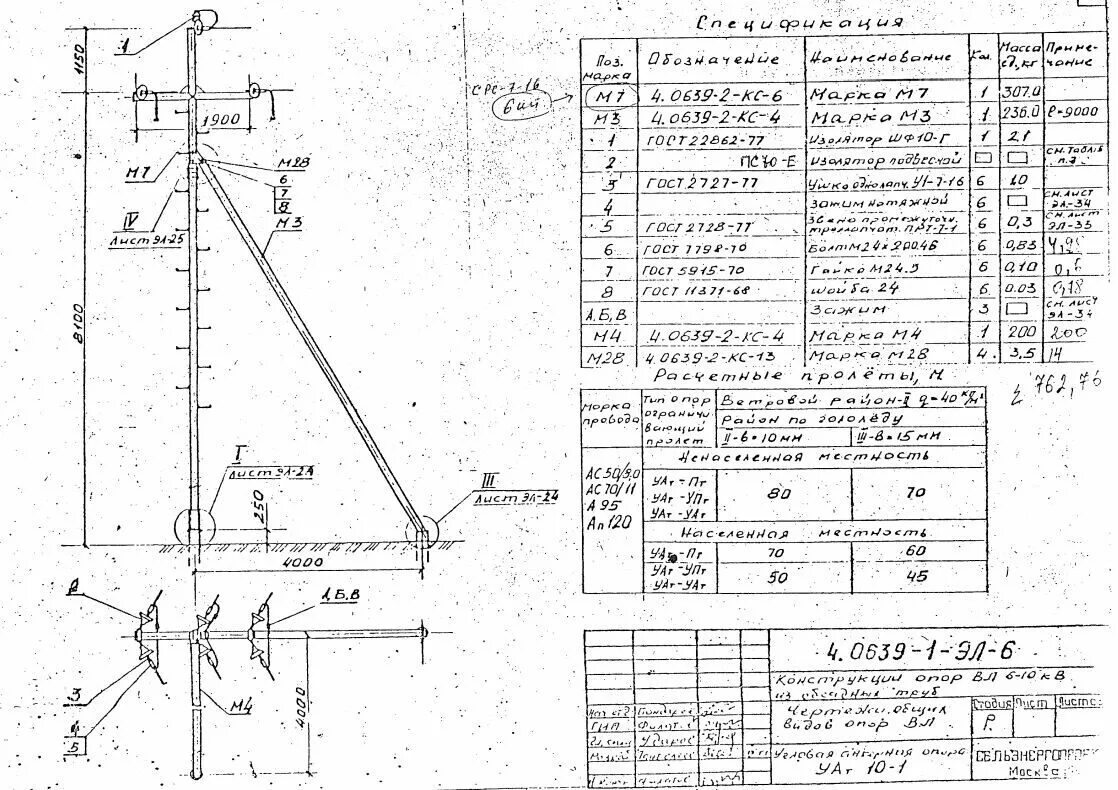 Спецификация
Поз. марка Обозначение Наименование Кол. Масса ед,кг Примечание
М7 4.0639-2-КС-6 Марка М7 1 307.0
М3 4.0639-2-КС-4 Марка М3 1 236.0 ℓ=9000
1 ГОСТ 22862-77 Изолятор ШФ10-Г 1 2.1
2 ПС70-Е Изолятор подвесной
3 ГОСТ 2727-77 Ушко однолапч. У1-7-16 6 1.0
4 Зажим натяжной 6 см. лист ЭЛ-34
5 ГОСТ 2728-77 Звено промежуточн. трехлапчат. ПРТ-7-1 6 0,3 см. лист ЭЛ-35
6 ГОСТ 7798-70 Болт М24×200.46 6 0,83
7 ГОСТ 5915-70 Гайка М24.5 6 0,10
8 ГОСТ 11371-68 Шайба 24 6 0.03 0,18
А,Б,В Зажим 3 см. лист ЭЛ-34
М4 4.0639-2-КС-4 Марка М4 1 200 200
М28 4.0639-2-КС-13 Марка М28 4 3,5 14
Σ 762,76
Расчетные пролёты, м
Марка провода
Тип опор ограничивающий пролет
Ветровой район-II q=40 кг/м²
Район по гололёду
II-в=10мм III-в=15мм
Ненаселенная местность
АС50/8,0
АС70/11
А95
Ап120
УАт-Пт
УАт-УПт
УАт-УАт
80 70
Населенная местность
УАт-Пт 70 60
УАт-УПт
УАт-УАт
50 45
1
1150
1900
СРС-7-16
6 шт
М7
М28
6
7
8
IV
Лист ЭЛ-25
М3
8100
I
Лист ЭЛ-24
250
III
Лист ЭЛ-24
4000
2
А,Б,В
3
4
5
М4
4000
4.0639-1-ЭЛ-6
Конструкции опор ВЛ 6-10кВ
из обсадных труб
Чертежи общих
видов опор ВЛ.
Стадия Лист Листов
Р
Угловая анкерная опора
УАт 10-1
СЕЛЬЭНЕРГОПРОЕКТ
Москва
Нач. отд.
ГИП